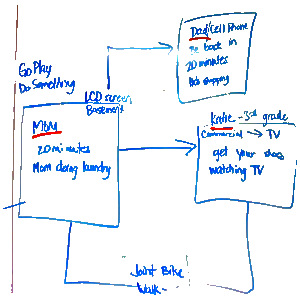 Go Play
Do Something
LCD screen
Basement
Mom
20 minutes
Mom doing laundry
Dad/Cell Phone
Be back in
20 minutes
shopping
Katie - 3rd grade
Commercial → TV
get your shoes
watching TV
Joint Bike
Walk -